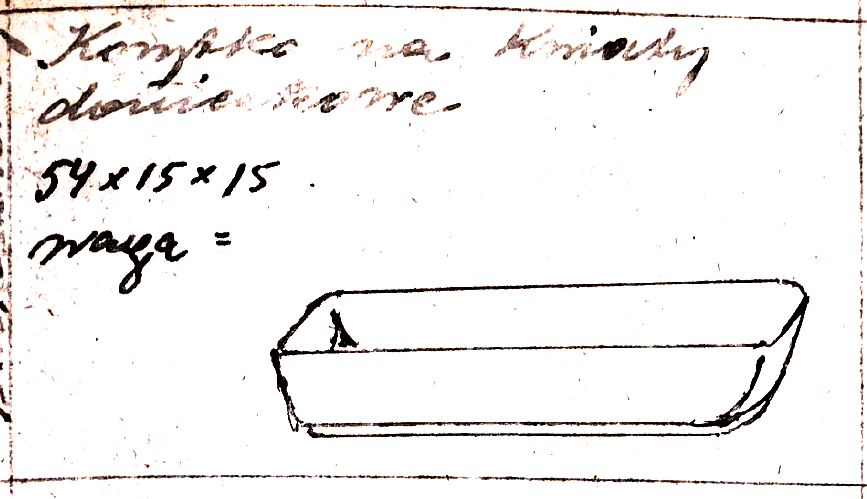 Korytko na kwiaty
doniczkowe
54 x 15 x 15
waga =